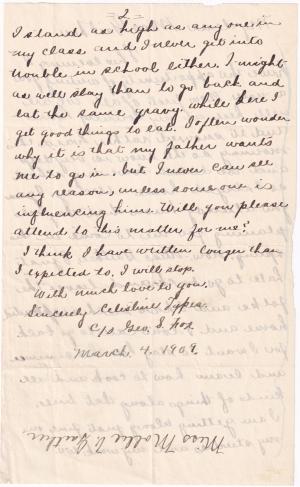 = 2 =
I stand as high as any one in
my class and I never get into
trouble in school either. I might
as well stay than to go back and
eat the same gravy. while here I
get good things to eat. I often wonder
why it is that my father wants
me to go in, but I never can see
any reason, unless some one is
influencing him. Will you please
attend to this matter for me?
I think I have written longer than
I expected to. I will stop.
With much love to you.
Sincerely Celestine
c/o Geo. S.
March, 4. 1909.
Miss Mollie V. Gaither